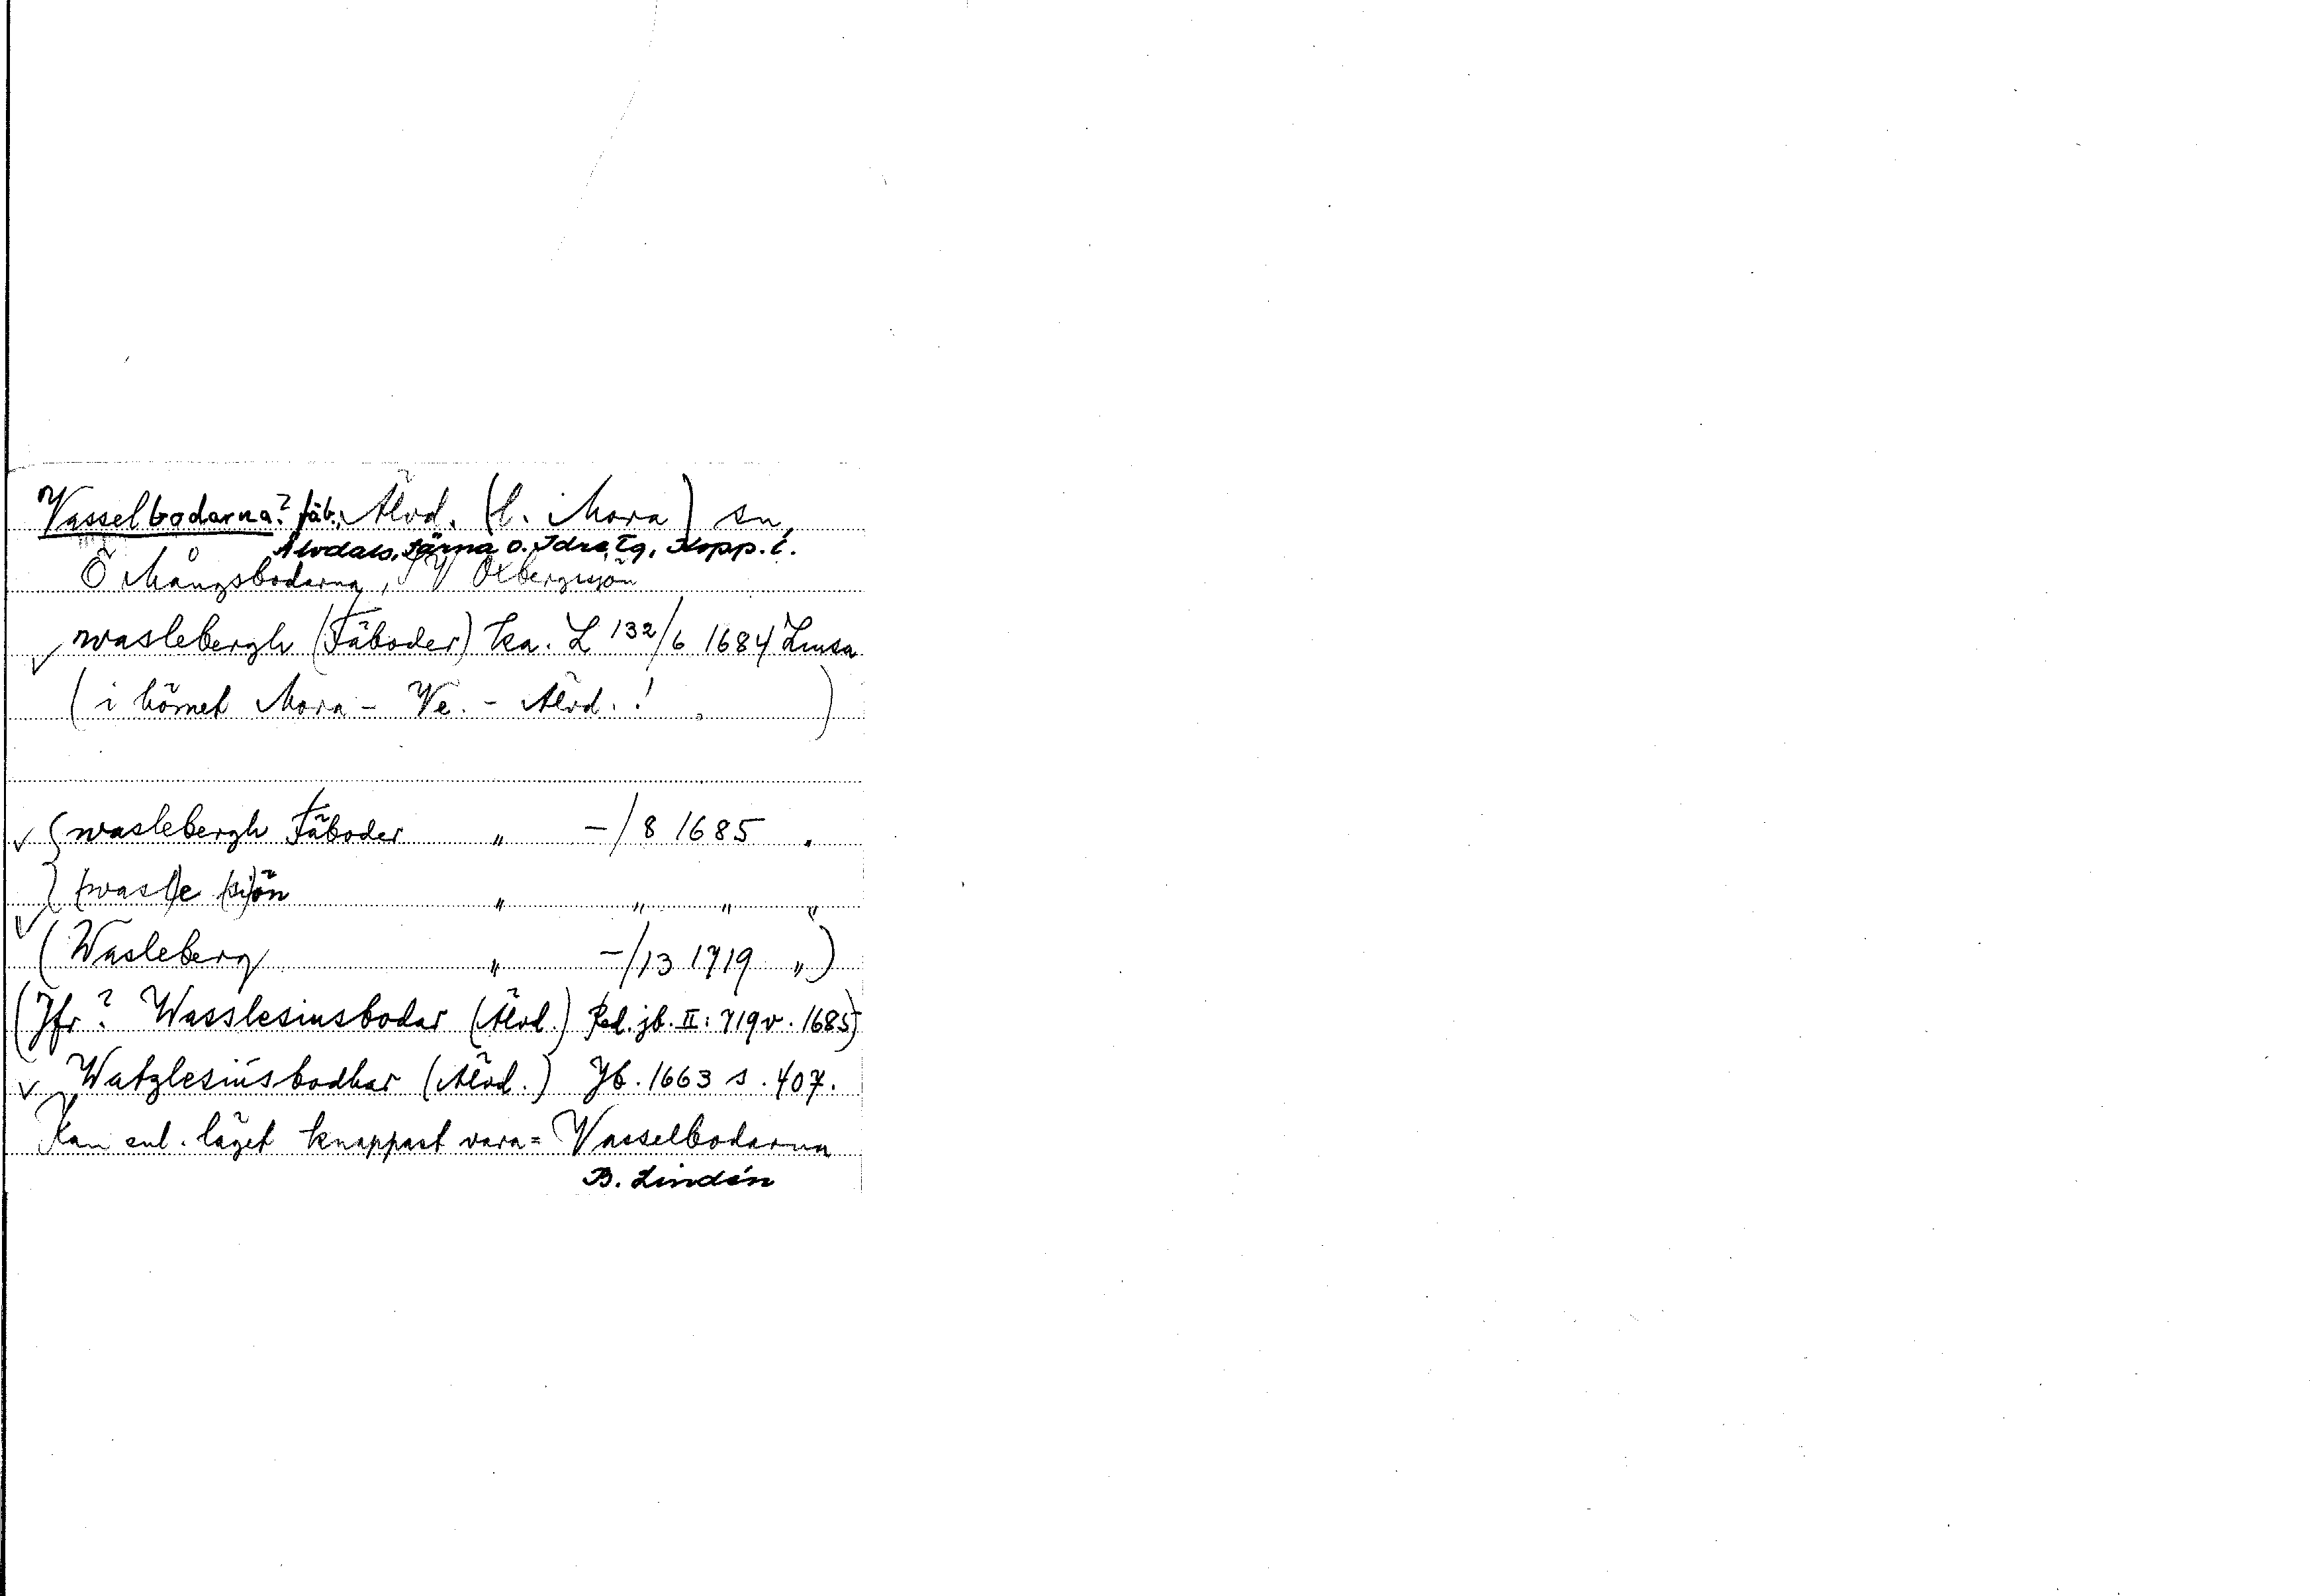 Vasselbodarna? fäb., Älvd. (l. Mora) sn,
Älvdals, Särna o. Idre tg, Kopp. l.
Ö Mångsbodarna, SV Oxbergssjön
✓ waslebergh (Fäboder) ka. L 132/6 1684 Lmsa
(i hörnet Mora - Ve. - Älvd.! )
✓ waslebergh Fäboder " -/8 1685 "
✓ (wasle siön " " " "
(Wasleberg " -/13 1719 ")
(Jfr? Wasslesiusbodar (Älvd.) Red. jb. II: 719 v. 1685)
✓ Watzlesiusbodhar (Älvd.) Jb. 1663 s. 407.
Kan enl. läget knappast vara = Vasselbodarna
B. Lindén